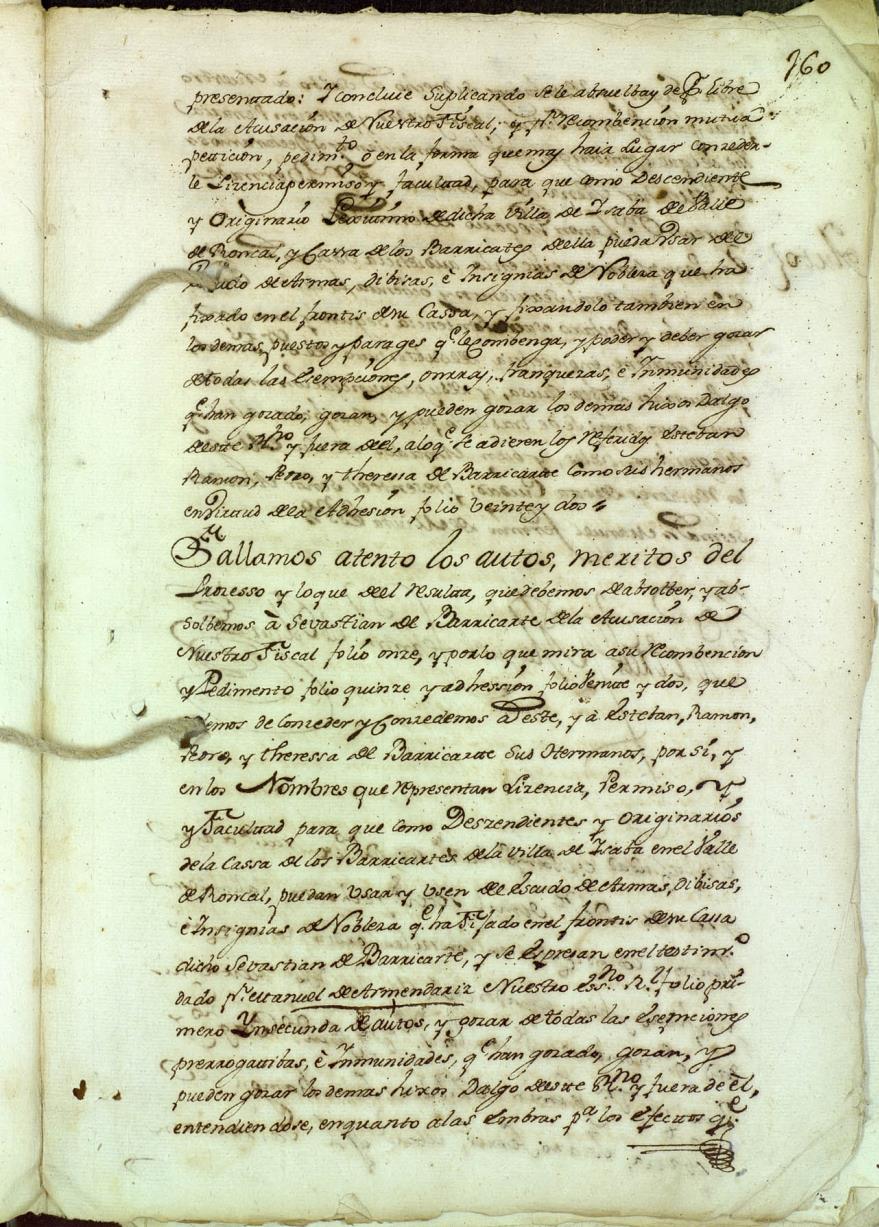 160
presentado: Y concluie Suplicando se le absuelba y de libre
de la Acusación de Nuestro Fiscal; y pr. Recombención mutua
petición, pedimto. ó en la forma que mas haia Lugar conzeder-
le Lizencia permiso y facultad, para que como Descendiente
y Originario de dicha Villa de Isaba del Valle
de Roncal, y Cassa de los Barricartes della pueda Usar del
Escudo de Armas, dibisas, é Insignias de Nobleza que ha
fixado en el frontis de su Cassa, y fixandolo tambien en
los demas, puestos y parages qe. le Combenga, y poder y deber gozar
de todas las Esempciones, onrras, franquezas, é Inmunidades
qe. han gozado, gozan, y pueden gozar los demas hixos Dalgo
de este Rno. y fuera del, a lo qe. se adieren los Referidos Esteban
Ramon, Pedro, y Theressa de Barricarte como sus hermanos
en Virtud de la Adhesión folio Veinte y dos
Fallamos atento los autos, meritos del
Prozesso y lo que del Resulta, que debemos de absolber, y ab-
solbemos à Sevastian de Barricarte de la Acusación de
Nuestro Fiscal folio onze, y por lo que mira a su Recombencion
y Pedimento folio quinze y adhessión folio Veinte y dos, que
debemos de Conzeder y Conzedemos à este, y à Esteban, Ramon,
Pedro, y Theressa de Barricarte Sus Hermanos, por sí, y
en los Nombres que representan Lizencia, Permiso, y
y Facultad para que como Deszendientes y Originarios
de la Cassa de los Barricartes de la Villa de Isaba en el Valle
de Roncal, puedan Usar y Usen de Escudo de Armas, Dibisas,
é Insignias de Nobleza qe. ha Fixado en el frontis de su Cassa
dicho Sevastian de Barricarte, y se Espresan en el testimo.
dado pr. Manuel de Armendariz Nuestro Essno. Rl. folio pri-
mero Insecunda de autos, y gozar de todas las Esempciones
prerrogatibas, é Inmunidades, qe. han gozado, gozan, y
pueden gozar los demas hixos Dalgo de este Rno. y fuera de él,
entendiendose, en quanto a las Embras pa. los efectos qe.